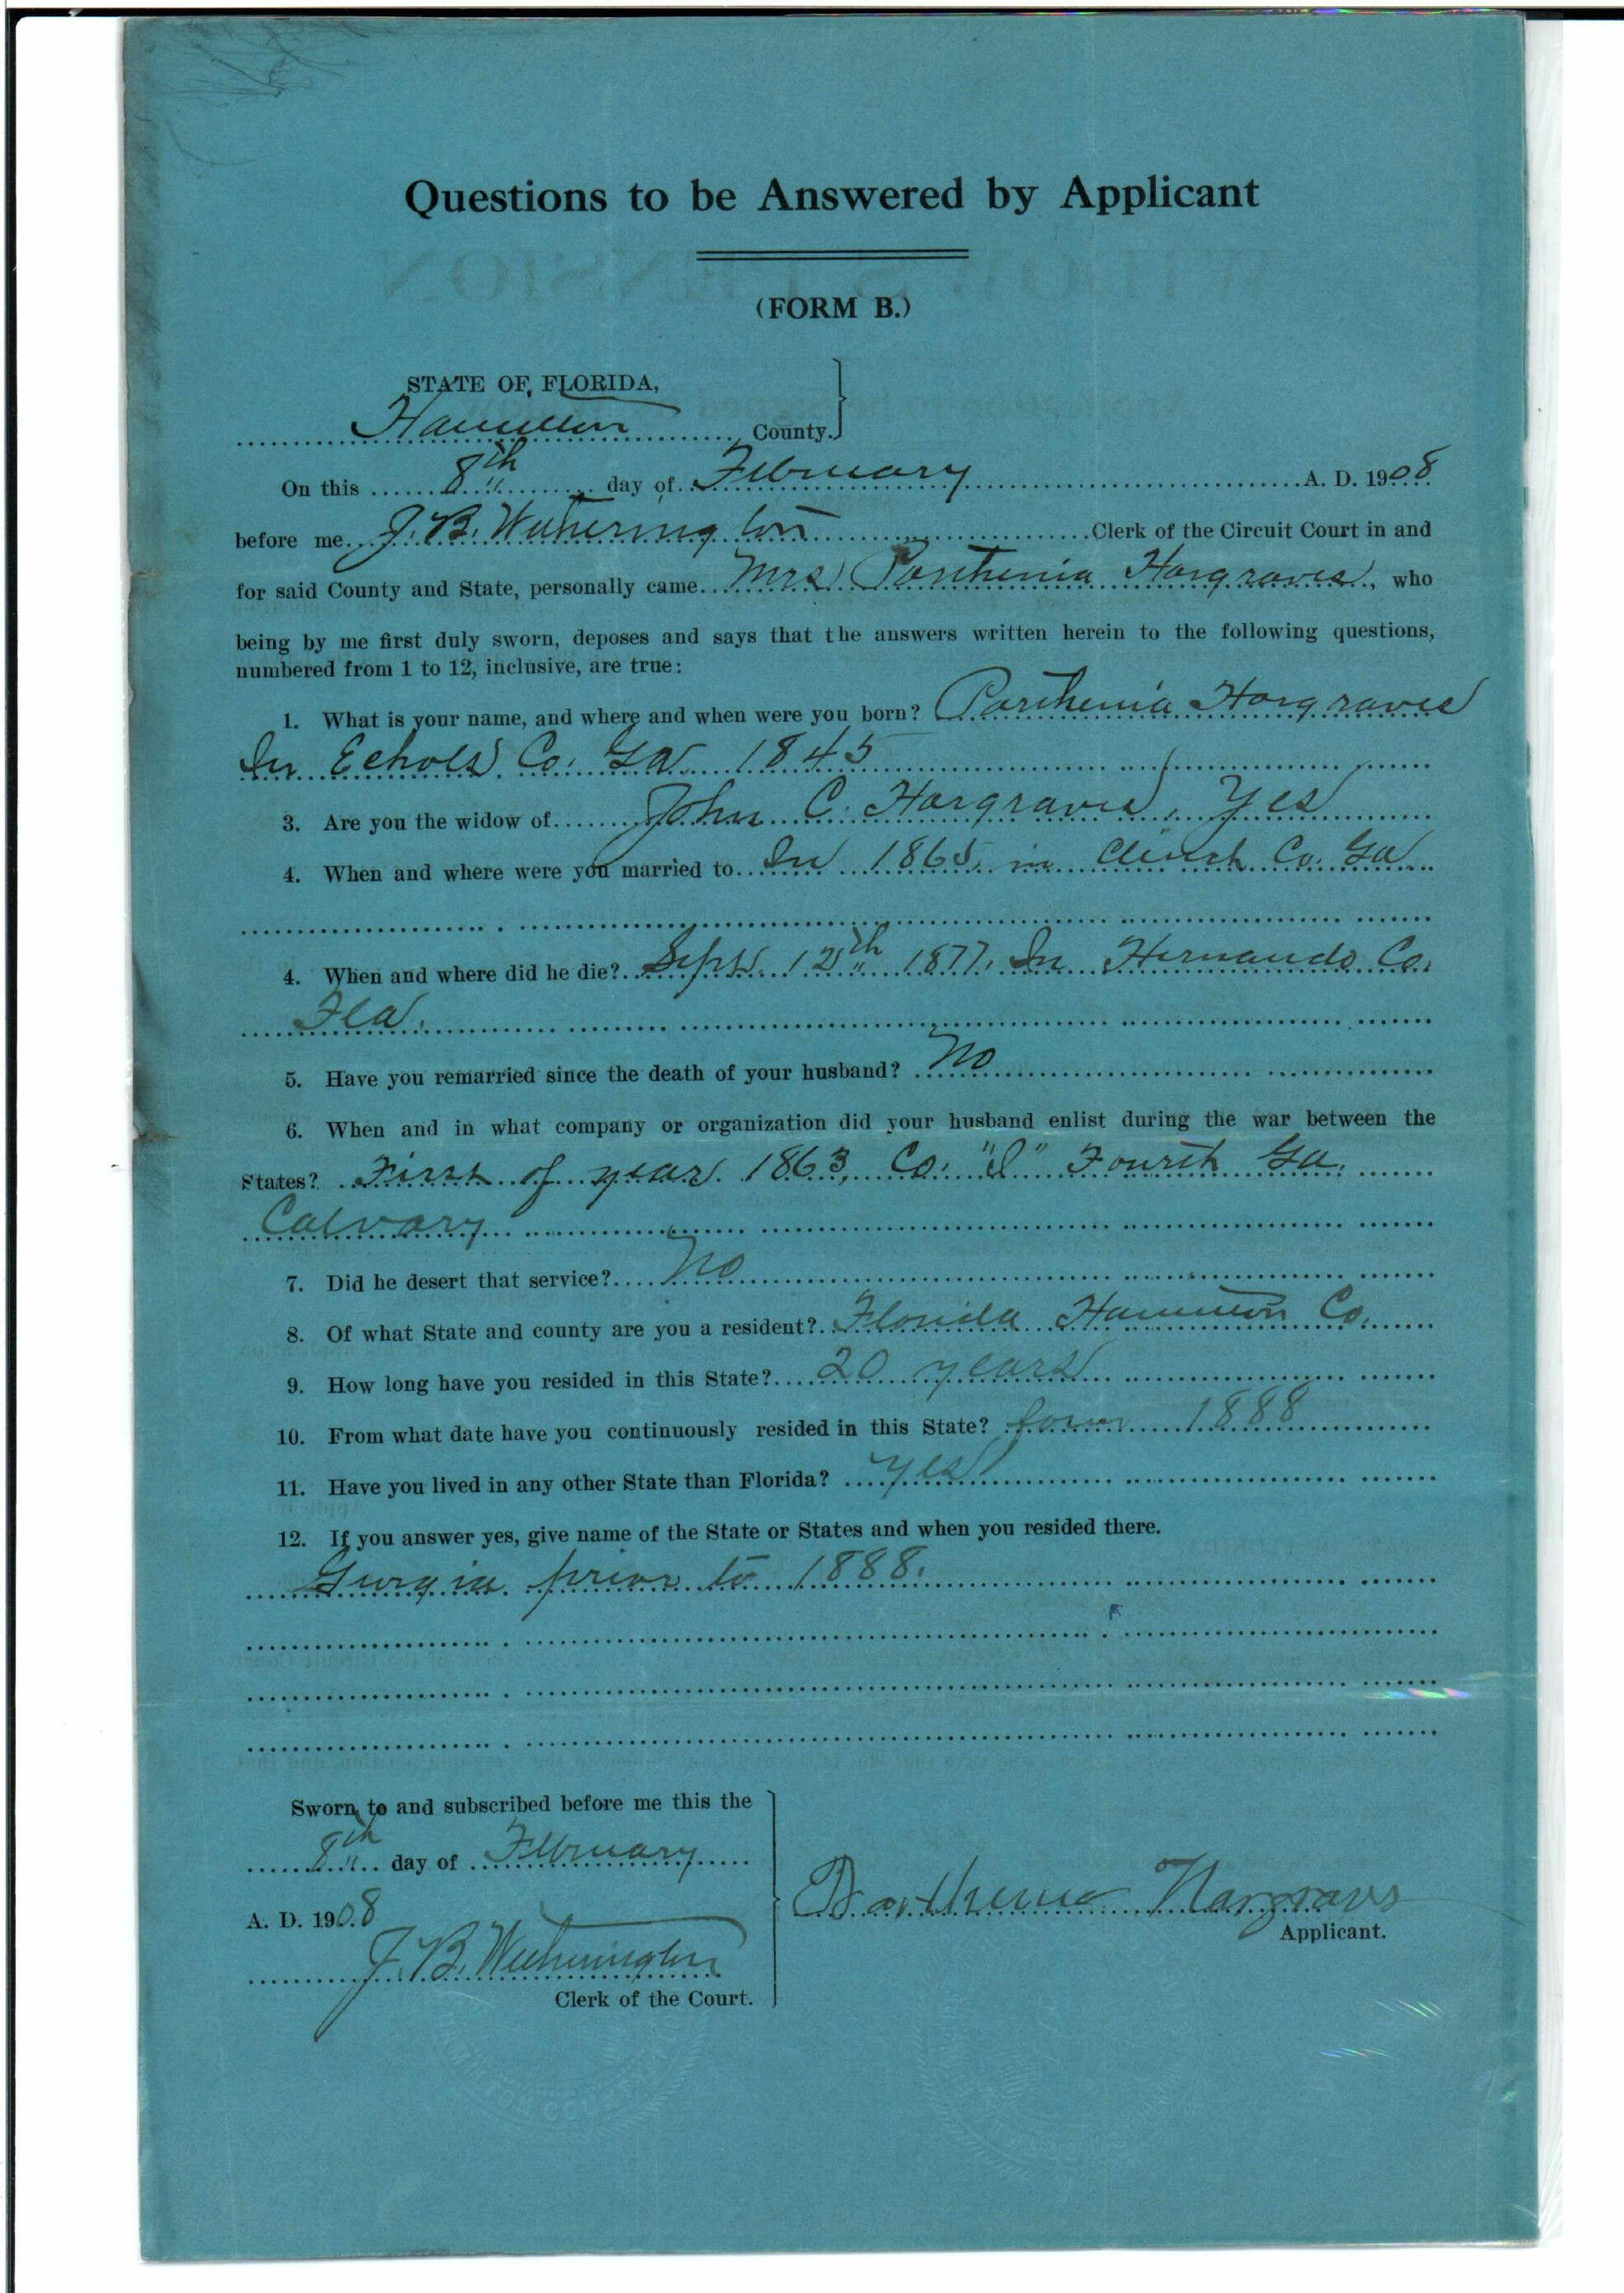 Questions to be Answered by Applicant
(FORM B.)
STATE OF FLORIDA,
Hamilton County.
On this 8th day of February A. D. 1908
before me J. B. Witherington Clerk of the Circuit Court in and
for said County and State, personally came Mrs Parthenia Hargraves, who
being by me first duly sworn, deposes and says that the answers written herein to the following questions,
numbered from 1 to 12, inclusive, are true:
1. What is your name, and where and when were you born? Parthenia Hargraves
In Echols Co. Ga 1845
3. Are you the widow of John C. Hargraves, Yes
4. When and where were you married to In 1865, in Clinch Co. Ga
4. When and where did he die? Sept. 12th 1877. In Hernando Co.
Fla.
5. Have you remarried since the death of your husband? No
6. When and in what company or organization did your husband enlist during the war between the
States? First of year 1863, Co. "I" Fourth Ga.
Calvary
7. Did he desert that service? No
8. Of what State and county are you a resident? Florida Hamilton Co.
9. How long have you resided in this State? 20 years
10. From what date have you continuously resided in this State? 1888
11. Have you lived in any other State than Florida? Yes
12. If you answer yes, give name of the State or States and when you resided there.
Georgia prior to 1888.
Sworn to and subscribed before me this the
8th day of February
A. D. 1908
J. B. Witherington
Clerk of the Court.
Parthenia Hargravs
Applicant.